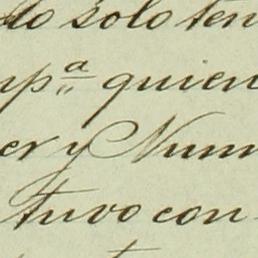 do solo ten
mpª quien
er y Num
tuvo con